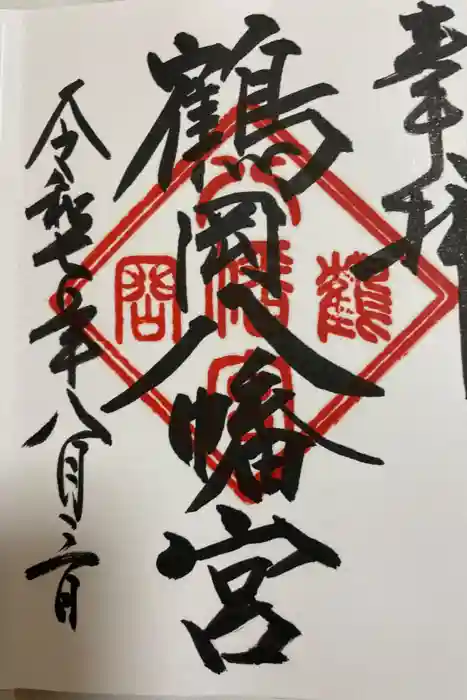 奉拝
鶴岡八幡宮
令和七年八月三日
鶴岡八幡宮